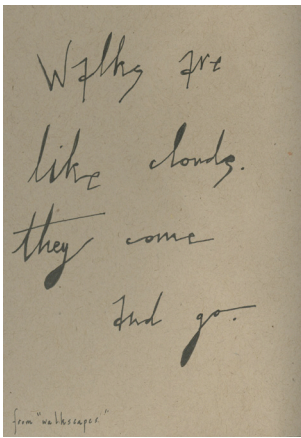 Walks are
like clouds.
they come
and go.
from "walkscapes."